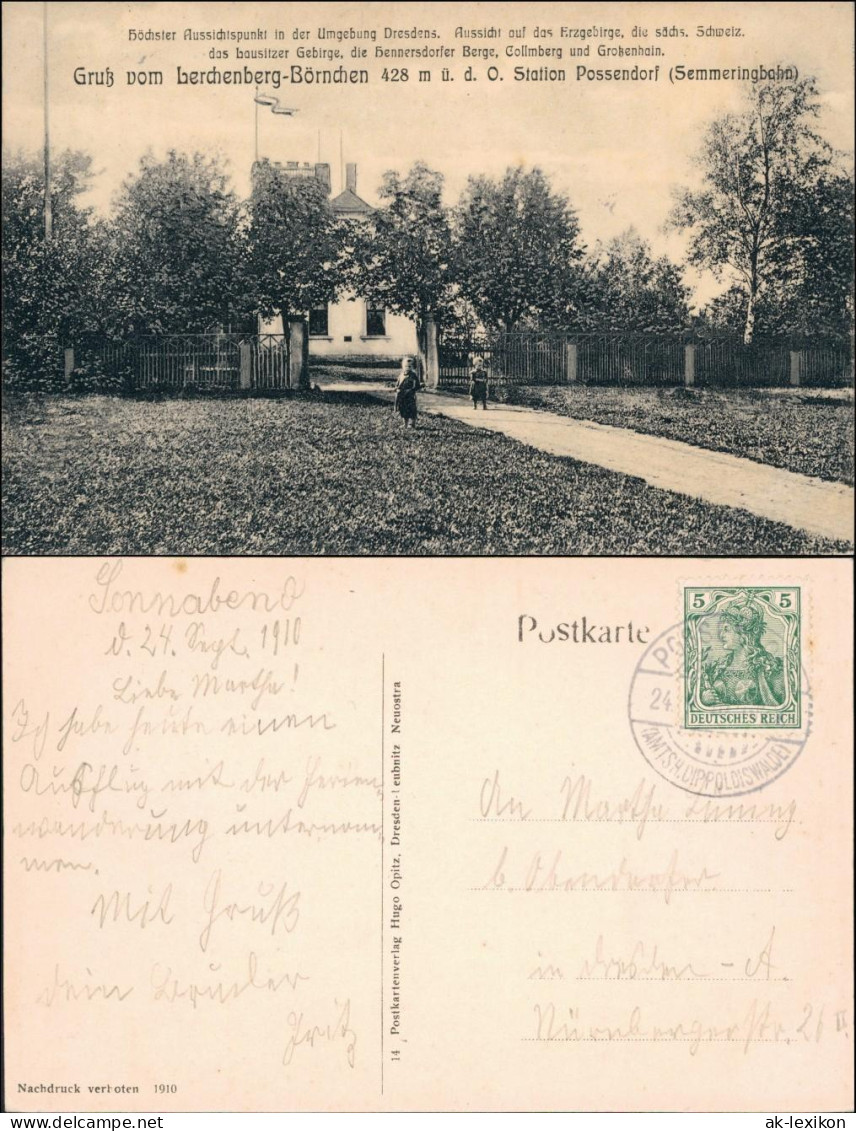 Höchster Aussichtspunkt in der Umgebung Dresdens. Aussicht auf das Erzgebirge, die sächs. Schweiz,
das Lausitzer Gebirge, die Hennersdorfer Berge, Collmberg und Großenhain.
Gruß vom Lerchenberg-Börnchen 428 m ü. d. O. Station Possendorf (Semmeringbahn)
Sonnabend
d. 24. Sept. 1910
Liebe Martha!
Ich habe heute einen
Ausflug mit der Ferien-
wanderung unternom-
men.
Mit Gruß
dein Bruder
Fritz
Nachdruck verboten 1910
14 Postkartenverlag Hugo Opitz, Dresden-Leubnitz Neuostra
Postkarte
5 5
DEUTSCHES REICH
24.
(AMTSH. DIPPOLDISWALDE)
An Martha
b. Obendorfer
in Dresden - A.
Nürnbergerstr. 21 II.
ak-lexikon
© ak-lexikon.com